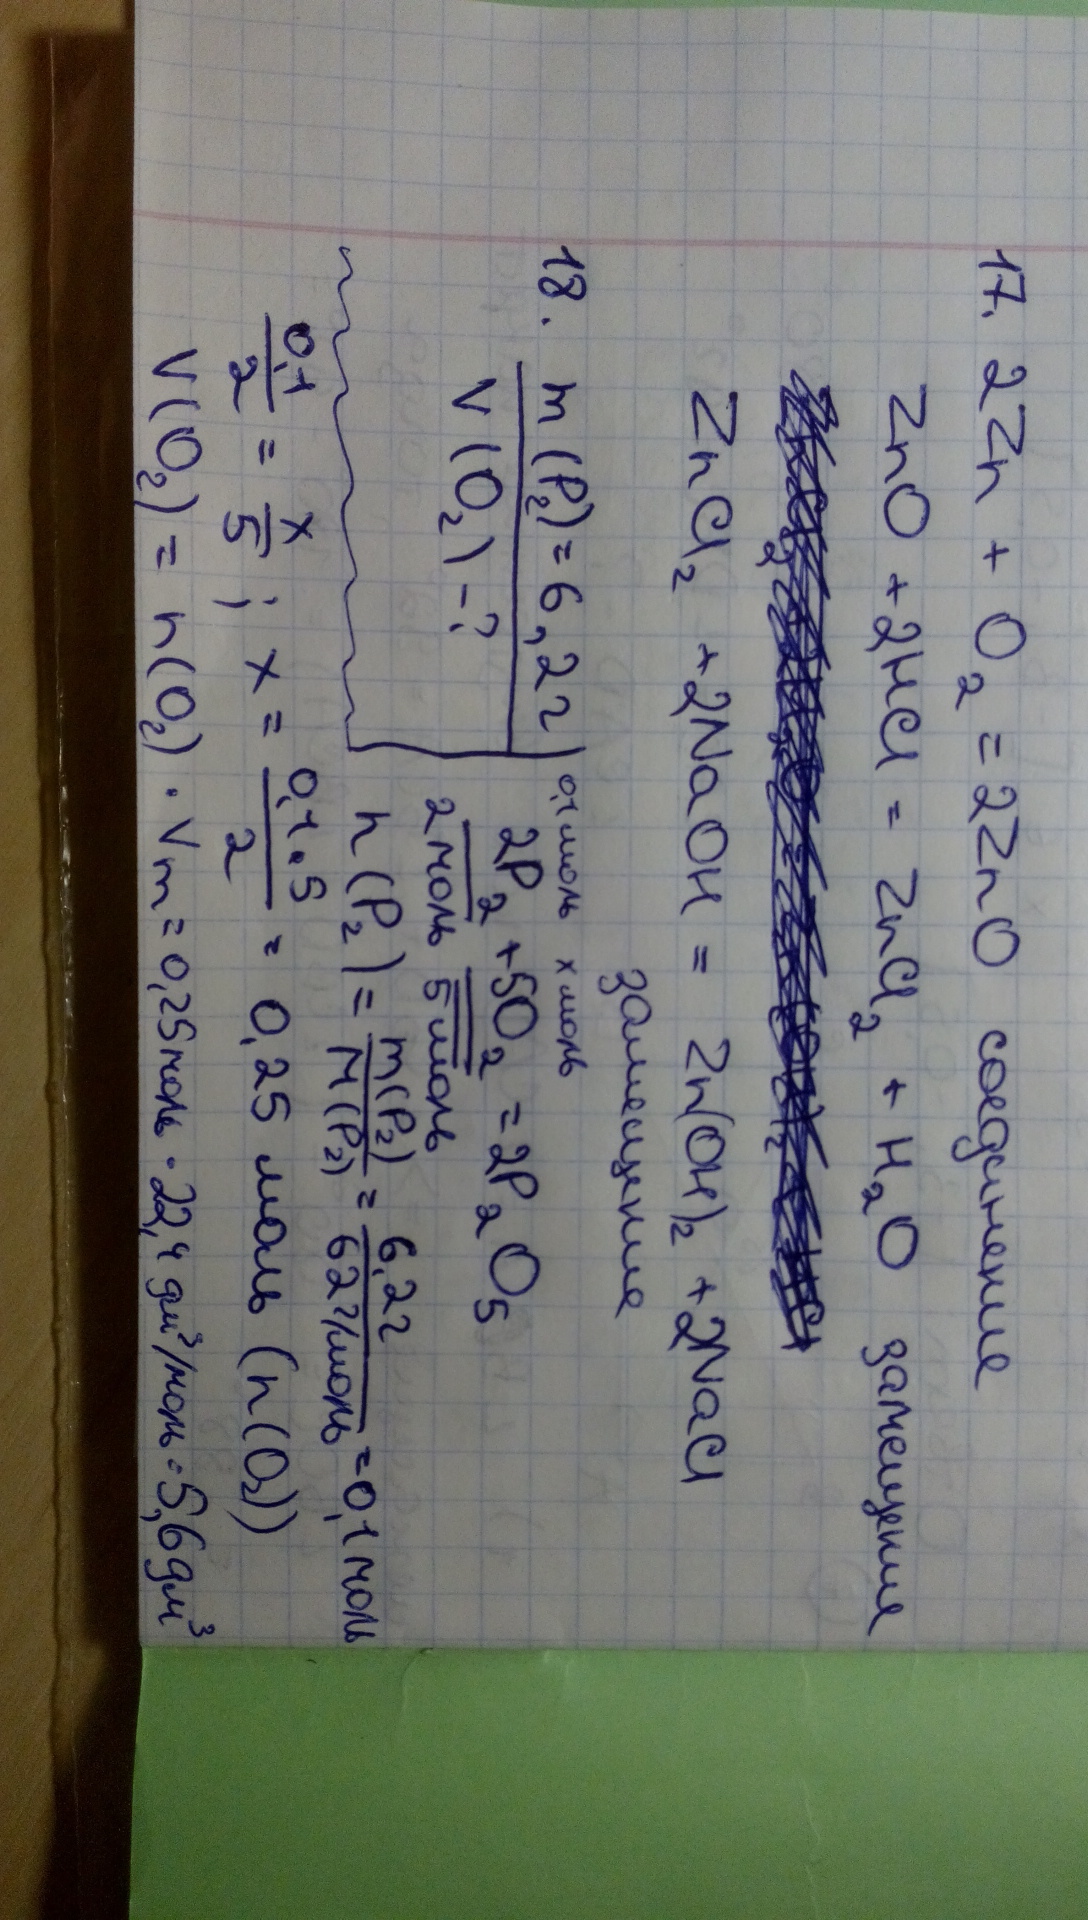 17. 2Zn + O₂ = 2ZnO соединение
ZnO + 2HCl = ZnCl₂ + H₂O замещение
ZnCl₂ + 2NaOH = Zn(OH)₂ + 2NaCl
замещение
18. m(P₂) = 6,2г
V(O₂) - ?
0,1 моль х моль
2P₂ + 5O₂ = 2P₂O₅
2 моль 5 моль
n(P₂) = m(P₂)/M(P₂) = 6,2г/62г/моль = 0,1 моль
0,1/2 = x/5 ; x = 0,1·5/2 = 0,25 моль (n(O₂))
V(O₂) = n(O₂) · Vm = 0,25 моль · 22,4 дм³/моль = 5,6 дм³